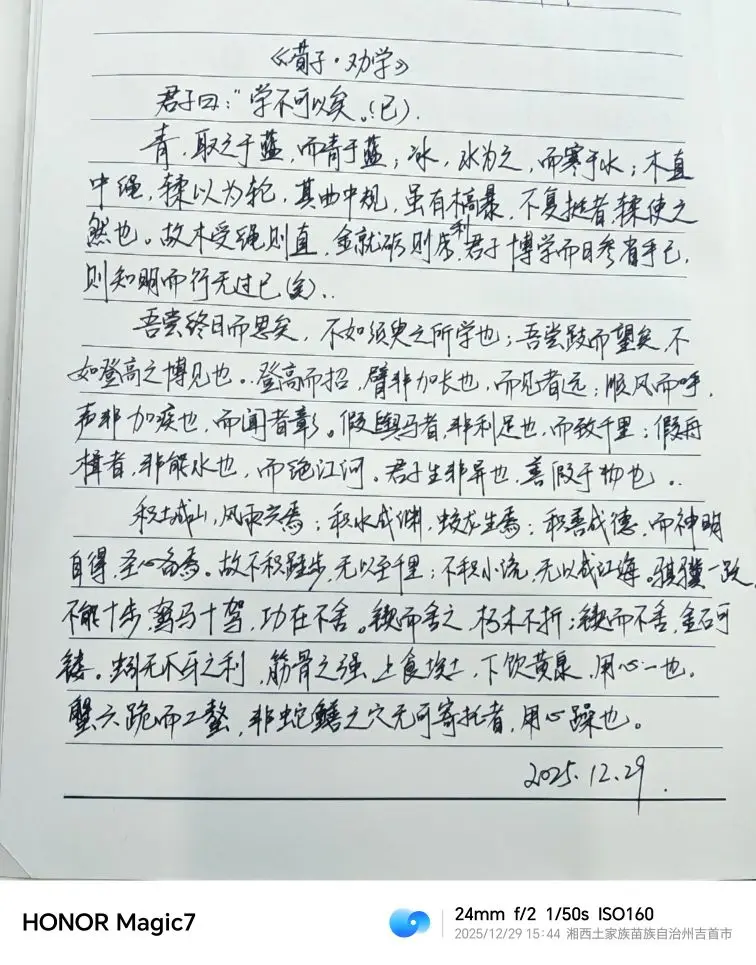 《荀子·劝学》
君子曰：“学不可以矣。(已).
青，取之于蓝，而青于蓝；冰，水为之，而寒于水；木直
中绳，輮以为轮，其曲中规，虽有槁暴，不复挺者，輮使之
然也。故木受绳则直，金就砺则利，君子博学而日参省乎己，
则知明而行无过已(矣)..
吾尝终日而思矣，不如须臾之所学也；吾尝跂而望矣，不
如登高之博见也。登高而招，臂非加长也，而见者远；顺风而呼，
声非加疾也，而闻者彰。假舆马者，非利足也，而致千里；假舟
楫者，非能水也，而绝江河。君子生非异也，善假于物也..
积土成山，风雨兴焉；积水成渊，蛟龙生焉；积善成德，而神明
自得，圣心备焉。故不积跬步，无以至千里；不积小流，无以成江海。骐骥一跃，
不能十步，驽马十驾，功在不舍。锲而舍之，朽木不折；锲而不舍，金石可
镂。蚓无爪牙之利，筋骨之强，上食埃土，下饮黄泉，用心一也。
蟹六跪而二螯，非蛇鳝之穴无可寄托者，用心躁也。
2025.12.29.
HONOR Magic7
24mm f/2 1/50s ISO160
2025/12/29 15:44 湘西土家族苗族自治州吉首市